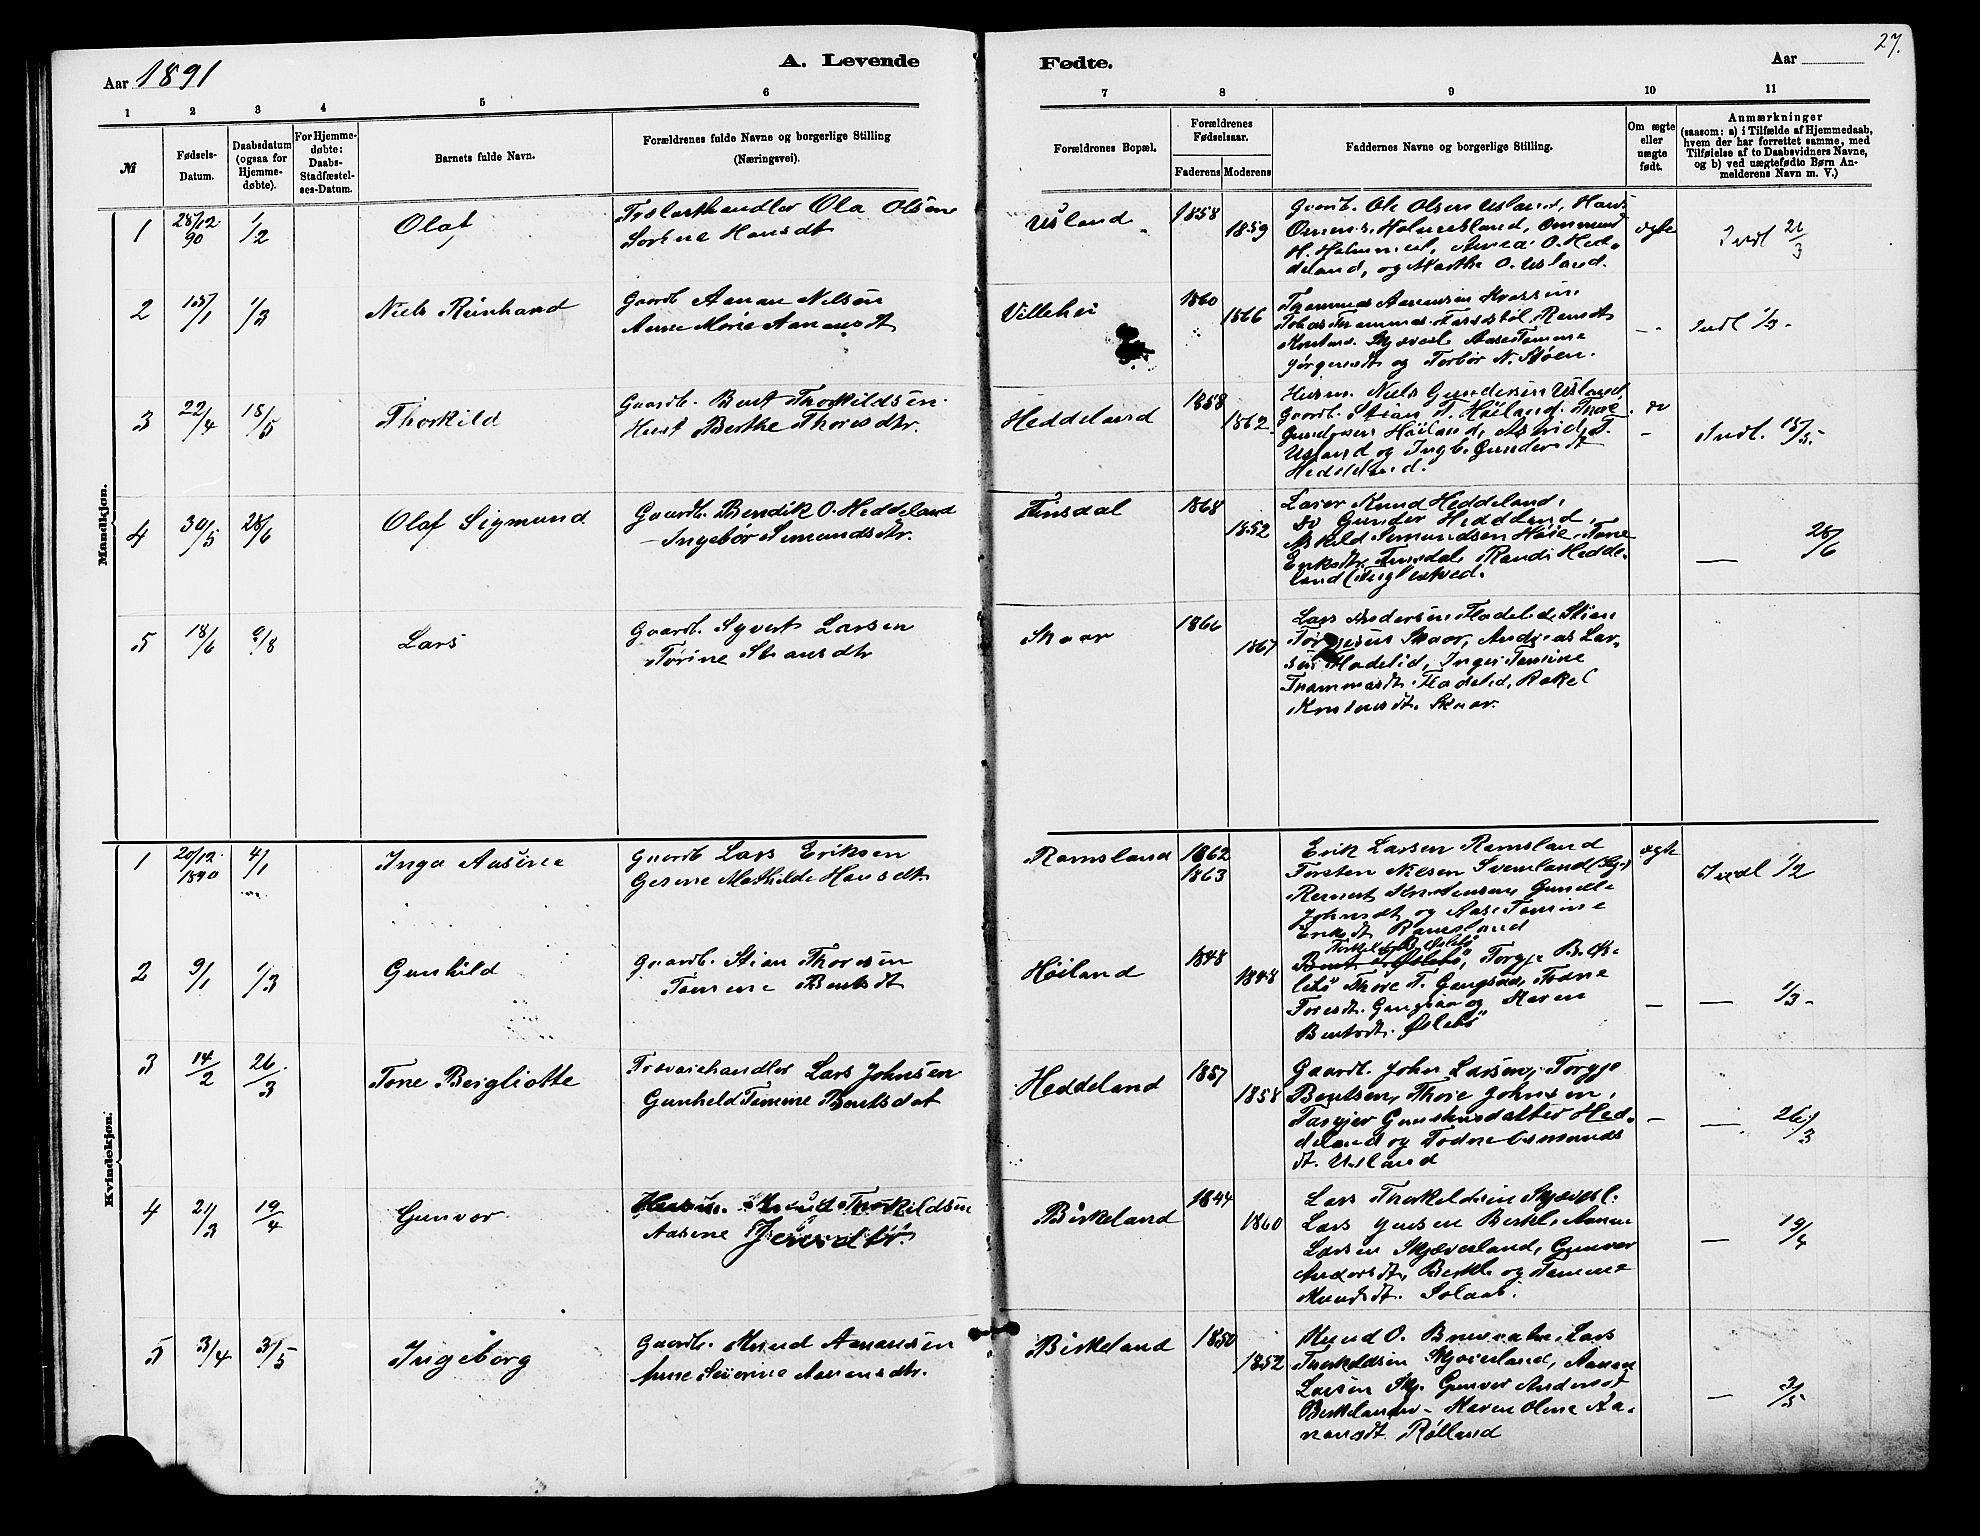 27.
Aar 1891
A. Levende
Fødte.
Aar
1 2 3 4 5 6 7 8 9 10 11
№
Fødsels-
Datum.
Daabsdatum
(ogsaa for
Hjemme-
døbte).
For Hjemme-
døbte:
Daabs-
Stadfæstel-
ses-Datum.
Barnets fulde Navn.
Forældrenes fulde Navne og borgerlige Stilling
(Næringsvei).
Forældrenes Bopæl.
Forældrenes
Fødselsaar.
Faderens Moderens
Faddernes Navne og borgerlige Stilling.
Om ægte
eller
uægte
født.
Anmærkninger
(saasom: a) i Tilfælde af Hjemmedaab,
hvem der har forrettet samme, med
Tilføielse af to Daabsvidners Navne,
og b) ved uægtefødte Børn An-
melderens Navn m. V.)
Mandkjøn.
1
28/12
90
1/2
Olaf
Trælasthandler Ola Olsen
Sorine Hansdt
Usland
1858
1859
Gaardb. Ole Olsen Usland, Hans
Holmesland, Ommund
H. Holmesl, O. Hed-
deland, og Marthe O. Usland.
ægte
Indl 21/3
2
15/1
1/3
Niels Reinhard
Gaardb Aanan Nilsen
Anne Marie Aanensdt
Villehei
1860
1866
Thommas Aanensen
Skjævesl Aase Tomine
Jørgensdt og Torbor N. Støen.
— -
Indl 1/3 -
3
22/4
18/5
Thorkild
Gaardb. Bent Thorkildsen
Hust Berthe Thoresdtr.
Heddeland
1858
1862
Husm. Niels Gundersen Usland,
Gaardb. Stian T. Høiland. Thore
Gundersen Høiland, Astrid T.
Usland og Ingb. Gundersdt
Heddeland.
do
-
Indl. 18/5 -
4
30/5
28/6
Olaf Sigmund
Gaardb. Bendik O. Heddeland
- Ingebor Simundsdtr.
Finsdal
1868
1852
Lærer Knud Heddeland,
do Gunder Heddeland,
Askild Simundsen Høie, Tone
Eriksdtr. Finsdal, Randi Hedde-
land (Fuglestved.
—
28/6
5
18/6
9/8
Lars
Gaardb. Syvert Larsen
Torine Stiansdtr
Skaar
1866
1867
Lars Andersen Flodelid, Stian
Skaar, Andreas Lar-
sen Flodelid, Inger Tomine
Thommasdt. Flodelid, Rakel
Knutsdt. Skaar.
Kvindekjøn.
1
20/12
1890
4/1
Inga Aasine
Gaardb Lars Eriksen
Gesine Mathilde Hansdt.
Ramsland
1862
1863
Erik Larsen Ramsland
Torsten Nilsen Sveneland (Lj.)
Reinert Kristensen Gunille
Johnsdt og Aase Tomine
Eriksdt Ramsland
ægte
Indl 1/2
2
9/1
1/3
Gunhild
Gaardb. Stian Thoresen
Tomine Bentsdt
Høiland
1848
1848
Torkel B. Øslebø
Øslebø, Torgje B. Øs-
lebø Thore T. Gangsaa, Todne
Toresdt. Gangsaa og Maren
Bentsdt. Øslebø
—
— 1/3 -
3
14/2
26/3
Tone Bergliotte
Trævarehandler Lars Johnsen
Gunheld Tomine Bentsdat
Heddeland
1857
1858
Gaardb. John Larsen, Torgje
Bentsen, Thore Johnsen,
Targjer Gunstensdatter Hed-
deland og Todne Osmunds
dt. Usland
—
— 26/3
4
21/3
19/4
Gunvor
Husm. Knud Thorkildsen
Aasine Jensdtr.
Birkeland
1844
1860
Lars Thorkeldsen Skjævesl.
Lars Jensen Berkl. Aanen
Larsen Skjævesland, Gunvor
Andersdt, Berkl. og Tomine
Knudsdt. Solaas.
— 19/4
5
3/4
3/5
Ingeborg
Gaardb. Knud Aanansen
Anne Severine Aanensdtr.
Birkeland
1850
1852
Knud O. Lars
Thorkeldsen Skjævesland, Aanen
Larsen Skj. Gunvor Andersdt
Berkeland - Maren Oline Aa-
nensdt Rølland
— 3/5